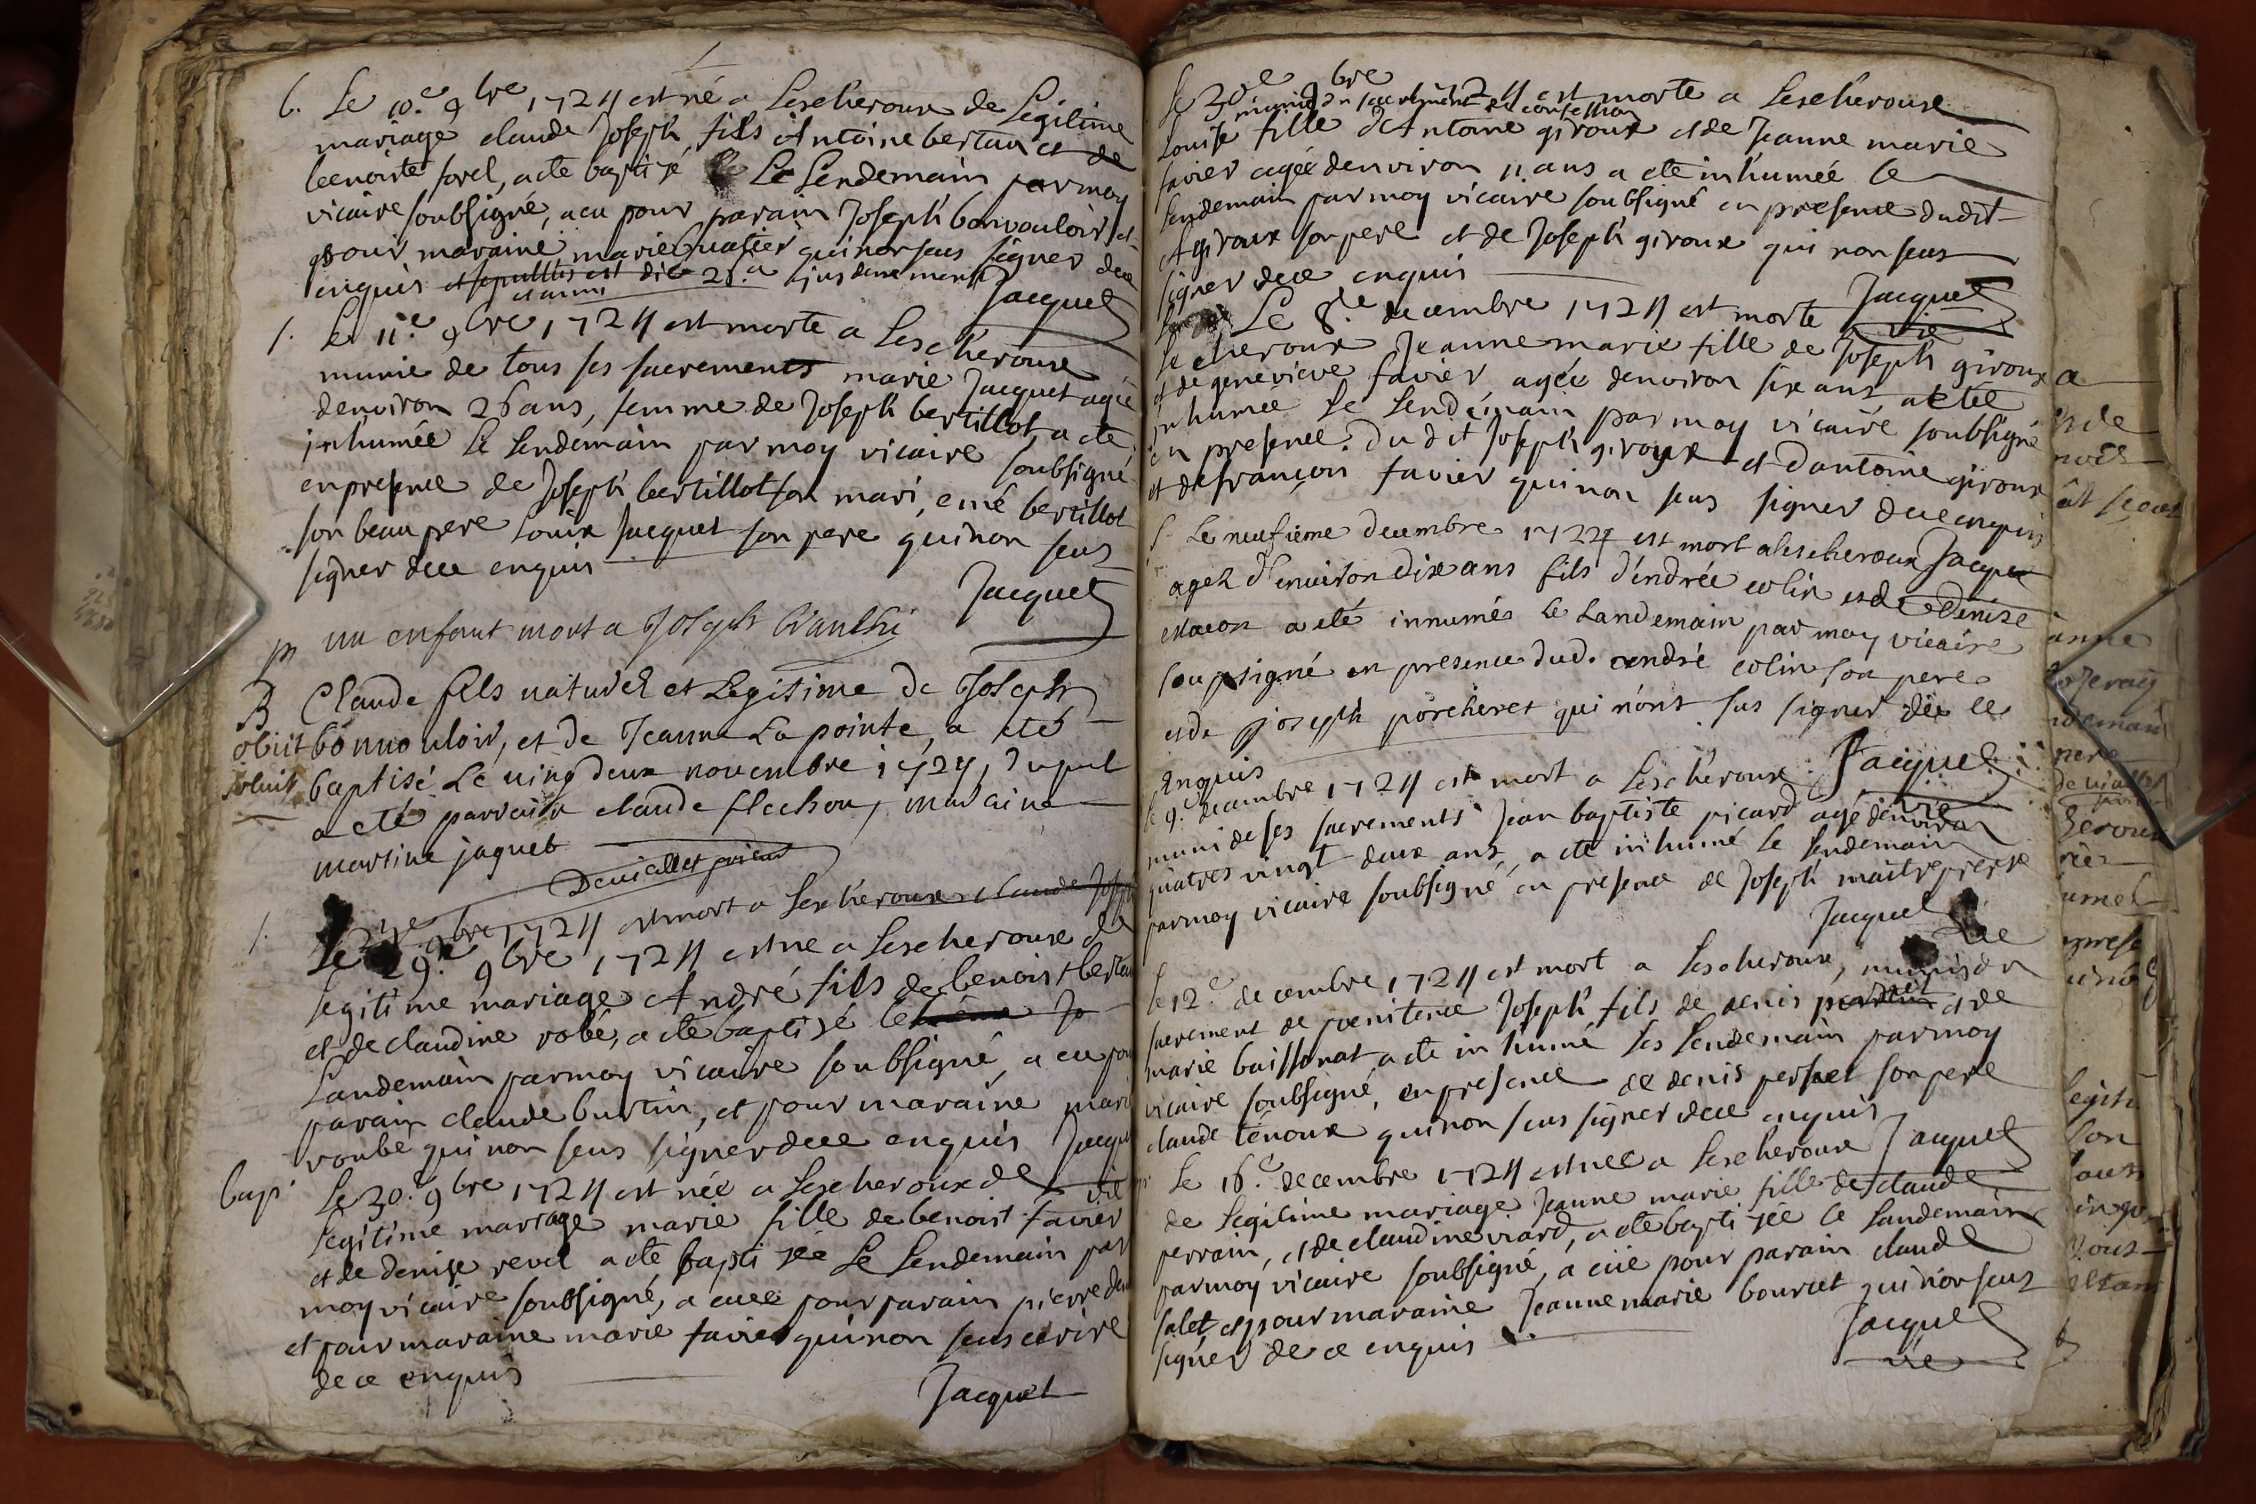 b. Le 10.e 9bre 1724 est né a Lescheroux de Legitime
mariage claude Joseph fils Antoine bertau et de
benoiste sorel, a ete baptizé Le Lendemain par moy
vicaire soubsigné, a eu pour parain Joseph bonvouloir et
pour maraine marie quatier qui non seus signer dece
enquis et sepultus est die 28.a ejusdem mensis
et anni Jacquet
s. Le 11.e 9bre 1724 est morte a Lescheroux
munie de tous ses sacrements marie Jacquet agée
denviron 26 ans, femme de Joseph bertillot, a ete
inhumée le Lendemain par moy vicaire soubsigné
en presence de Joseph bertillot son mari, emé bertillot
son beau pere Louis Jacquet son pere qui non seus
signer dece enquis
Jacquet
un enfant mort a Joseph
B Claude fils naturel et Legitime de Joseph
obiit bonnouloir, et de Jeanne La pointe, a eté
solvit baptisé Le vingdeux novembre 1724, duquel
a eté parrain claude flechon, maraine
martine jaquet
Devialle prieur
s. Le 9bre 1724 est mort a Lescheroux claude Joseph
Le 29.e 9bre 1724 est ne a Lescheroux de
legitime mariage André fils de benoist bertau
et de claudine robé, a ete baptizé le
Landemain par moy vicaire soubsigné, a eu pour
parain claude burtin, et pour maraine mari
roubé qui non seus signer dece enquis Jacquet
bapt. Le 30.e 9bre 1724 est née a Lescheroux de vic
legitime mariage marie fille de benoist favier
et de denise revel a ete baptizée Le Lendemain par
moy vicaire soubsigné, a euee pour parain pierre
et pour maraine marie favier qui non seus ecrire
de ce enquis
Jacquet
Le 30e 9bre 1724 est morte a Lescheroux
munie du sacrement de confession
Louise fille d'Antoine giroux et de Jeanne marie
favier agée denviron 11 ans a ete inhumée le
lendemain par moy vicaire soubsigné en presence dudit
A giroux son pere et de Joseph giroux qui non seus
signer dece enquis
Jacquet
vic
Le 8.e decembre 1724 est morte a
Lescheroux Jeanne marie fille de Joseph giroux
et de genevieve favier, agée denviron six ans a ete
inhumée Le Lendemain par moy vicaire soubsigné
en presence dudit Joseph giroux et dantoine giroux
et de françois favier qui non seus signer dece enquis
S. Le neufieme decembre 1724 est mort a lescheroux Jacque
agez d'enuiron dix ans fils d'endrée colin et de Denize
a eté innumés Le Landemain par moy vicaire
soupsigné en presence dud. andré colin son pere
et de joseph porcheret qui nont sus signer de ce
enquis
Jacquet
vic
le 9.e decembre 1724 est mort a Lescheroux
muni de ses sacrements Jean baptiste picard agé denviron
quatres vingt deux ans, a ete inhumé le lendemain
par moy vicaire soubsigné en presence de Joseph maitrepierre
Jacquet
vic
Le 12.e decembre 1724 est mort a Lescheroux, munis du
sacrement de poenitence Joseph fils de denis et de
marie buissonat a ete inhumé les Lendemain par moy
vicaire soubsigné, en presence de denis son pere
claude tenoux qui non seus signer dece enquis
Jacquet
Le 16.e decembre 1724 est nee a Lescheroux
de Legitime mariage Jeanne marie fille de claude
perrain, et de claudine viard, a ete baptizée le Landemain
par moy vicaire soubsigné, a eüe pour parain claude
salet et pour maraine Jeanne marie bouvret qui non seus
signer de ce enquis
Jacquet
vic